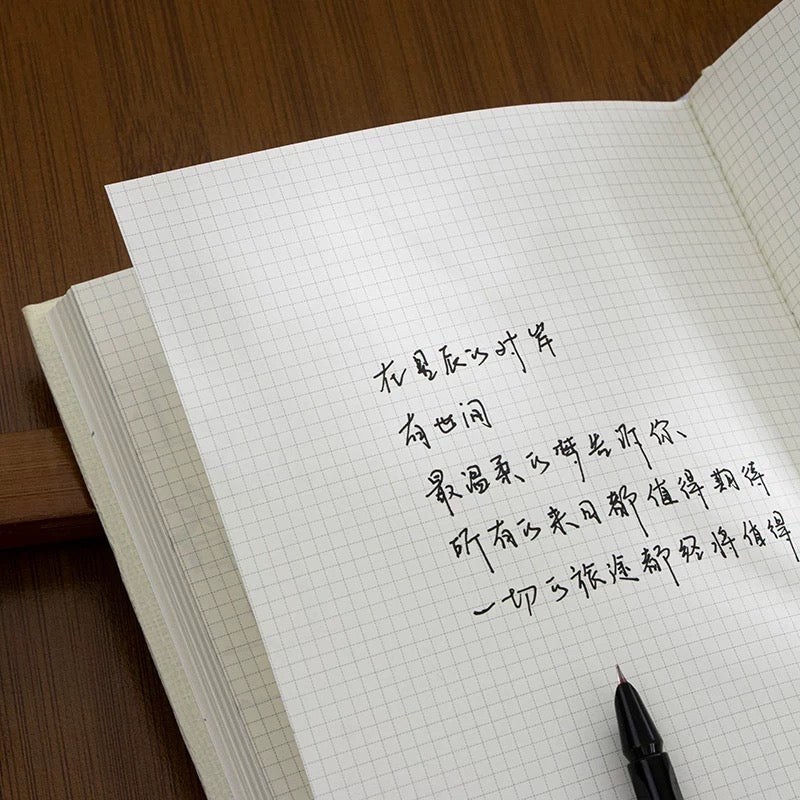 在星辰的对岸
有世间
最温柔的梦告诉你、
所有的来日都值得期待
一切的旅途都经将值得